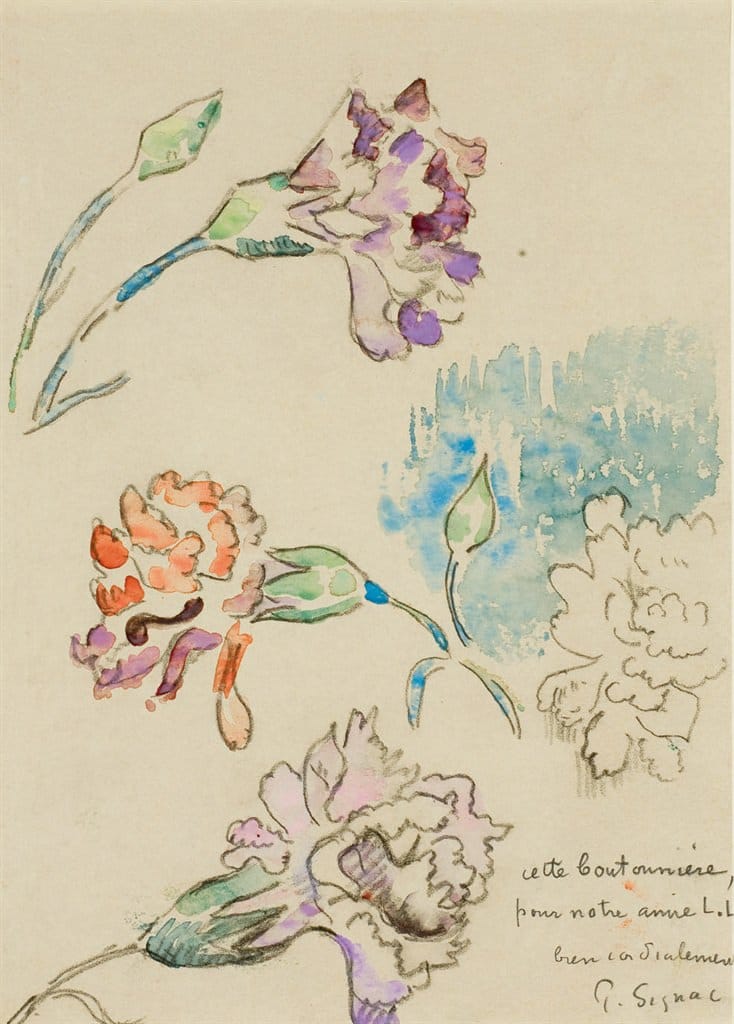 cette boutonnière,
pour notre amie L.L
bien cordialemen
P. Signac